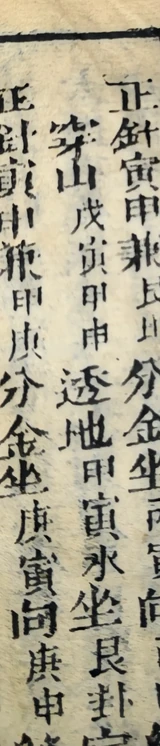 正針寅申兼艮坤分金坐丙寅向
穿山戊寅甲申透地甲寅水坐艮卦
正針寅申兼甲庚分金坐庚寅向庚申